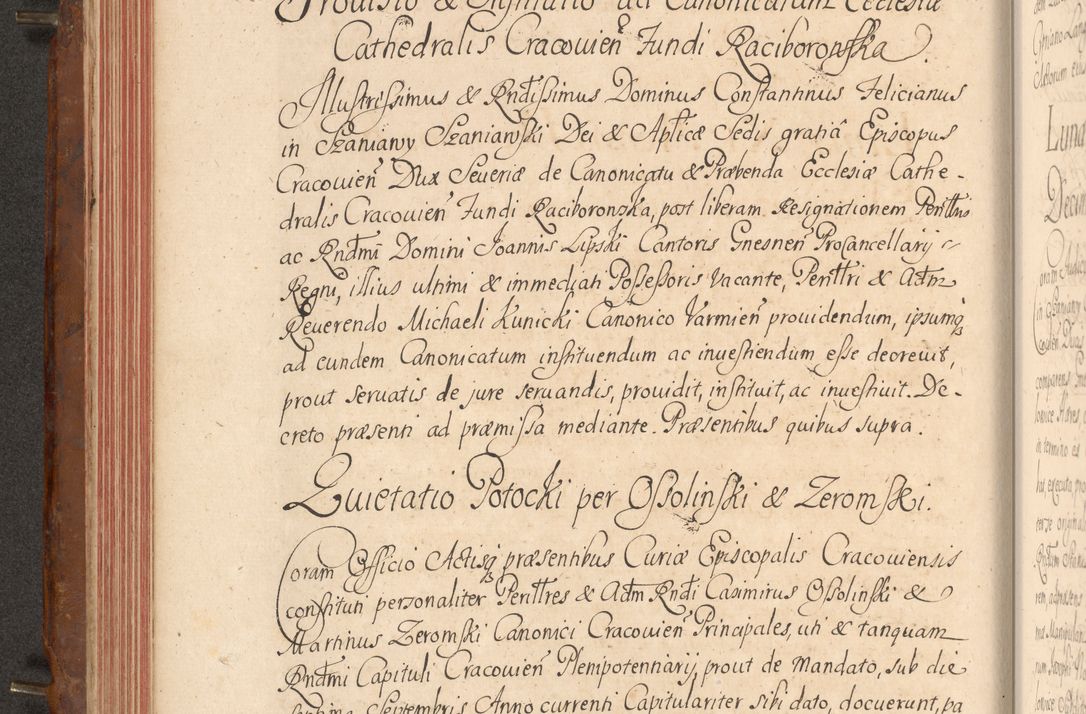 Provisio & Institutio ad Canonicatum Ecclesiæ
Cathedralis Cracouien Fundi Raciborowska.
Illustrissimus & Rndissimus Dominus Constantinus Felicianus
in Szaniawy Szaniawski Dei & Aplicæ Sedis gratiâ Episcopus
Cracouien Dux Severiæ de Canonicatu & Præbenda Ecclesiæ Cathe-
dralis Cracouien Fundi Raciboronzka, post liberam Resignationem Perillris
ac Rndmi Domini Joannis Lipski Cantoris Gnesnen Procancellarij
Regni, illius ultimi & immediati Possessoris vacante, Perillri & Adm
Reverendo Michaeli Kunicki Canonico Varmien providendum, ipsumq
ad eundem Canonicatum instituendum ac investiendum esse decrevit,
prout servatis de jure servandis, providit, instituit, ac investivit. De-
creto præsenti ad præmissa mediante. Præsentibus quibus supra.
Quietatio Potocki per Ossolinski & Zeromski.
Coram Officio Actisq præsentibus Curiæ Episcopalis Cracoviensis
constituti personaliter Perillres & Adm Rndi Casimirus Ossolinski &
Martinus Zeromski Canonici Cracouien Principales, uti & tanquam
Rndmi Capituli Cracouien Plenipotentiarij, prout de Mandato, sub die
Septembris Anno currenti Capitulariter sibi dato, docuerunt, pa